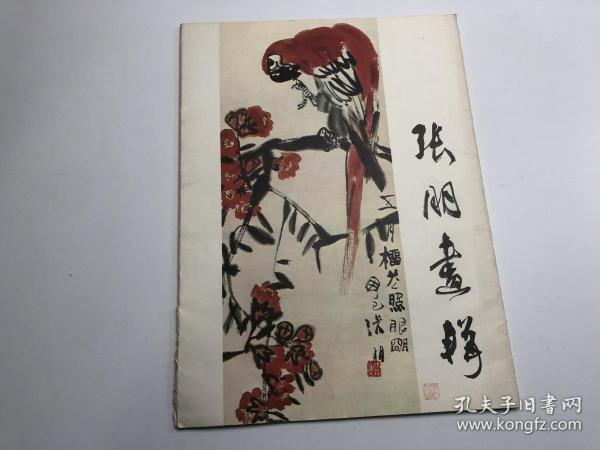 张朋畫輯
五月榴花照眼明
张朋
孔夫子旧书网
www.kongfz.com